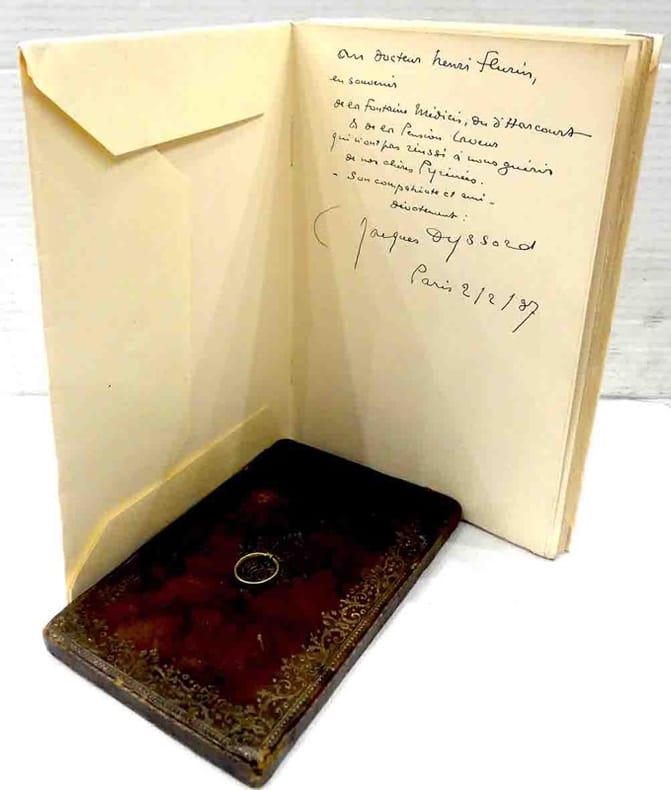 au docteur henri fleurin,
en souvenir
de la Fontaine Médicis, du d'Harcourt
& de la Pension
qui n'ont pas réussi à nous guérir
de nos chères Pyrénées.
- Son compatriote et ami -
dévotement :
Jacques Dyssord
Paris 2/2/37